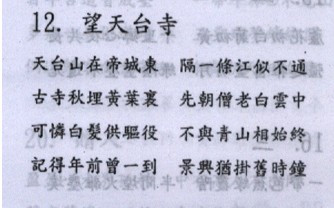 12. 望天台寺
天台山在帝城東　隔一條江似不通
古寺秋埋黃葉裏　先朝僧老白雲中
可憐白髮供驅役　不與青山相始終
記得年前曾一到　景興猶掛舊時鐘